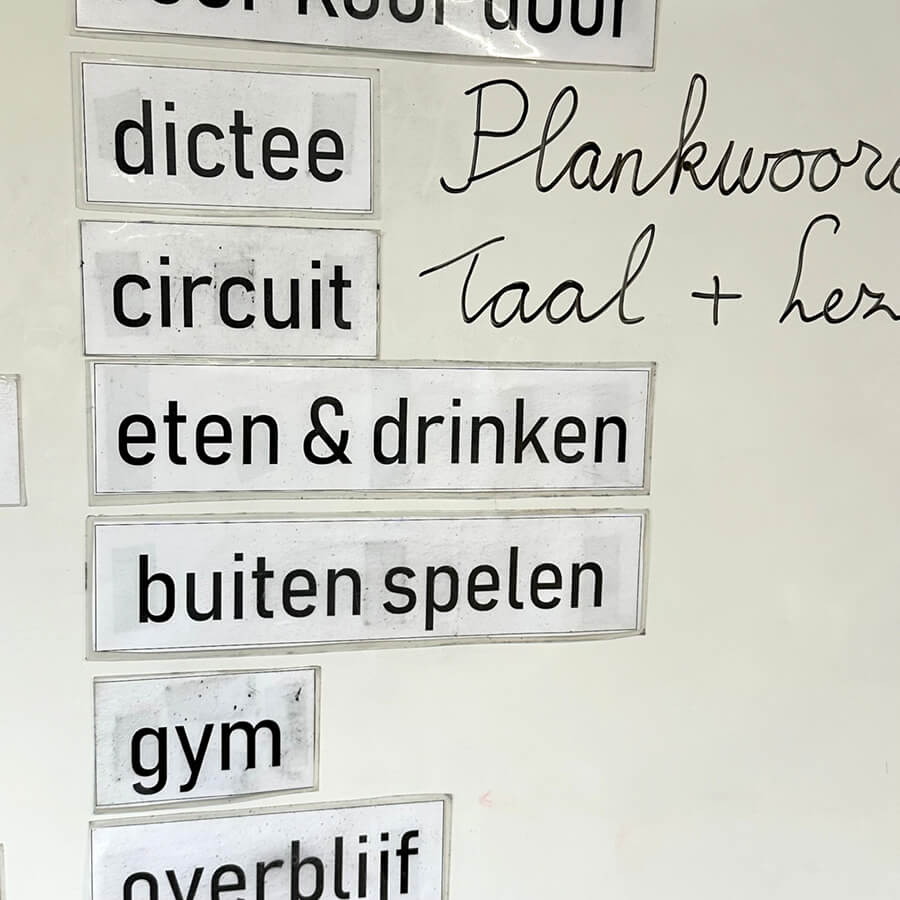 koor door
dictee Plankwoord
circuit Taal + Lez
eten & drinken
buiten spelen
gym
overblijf